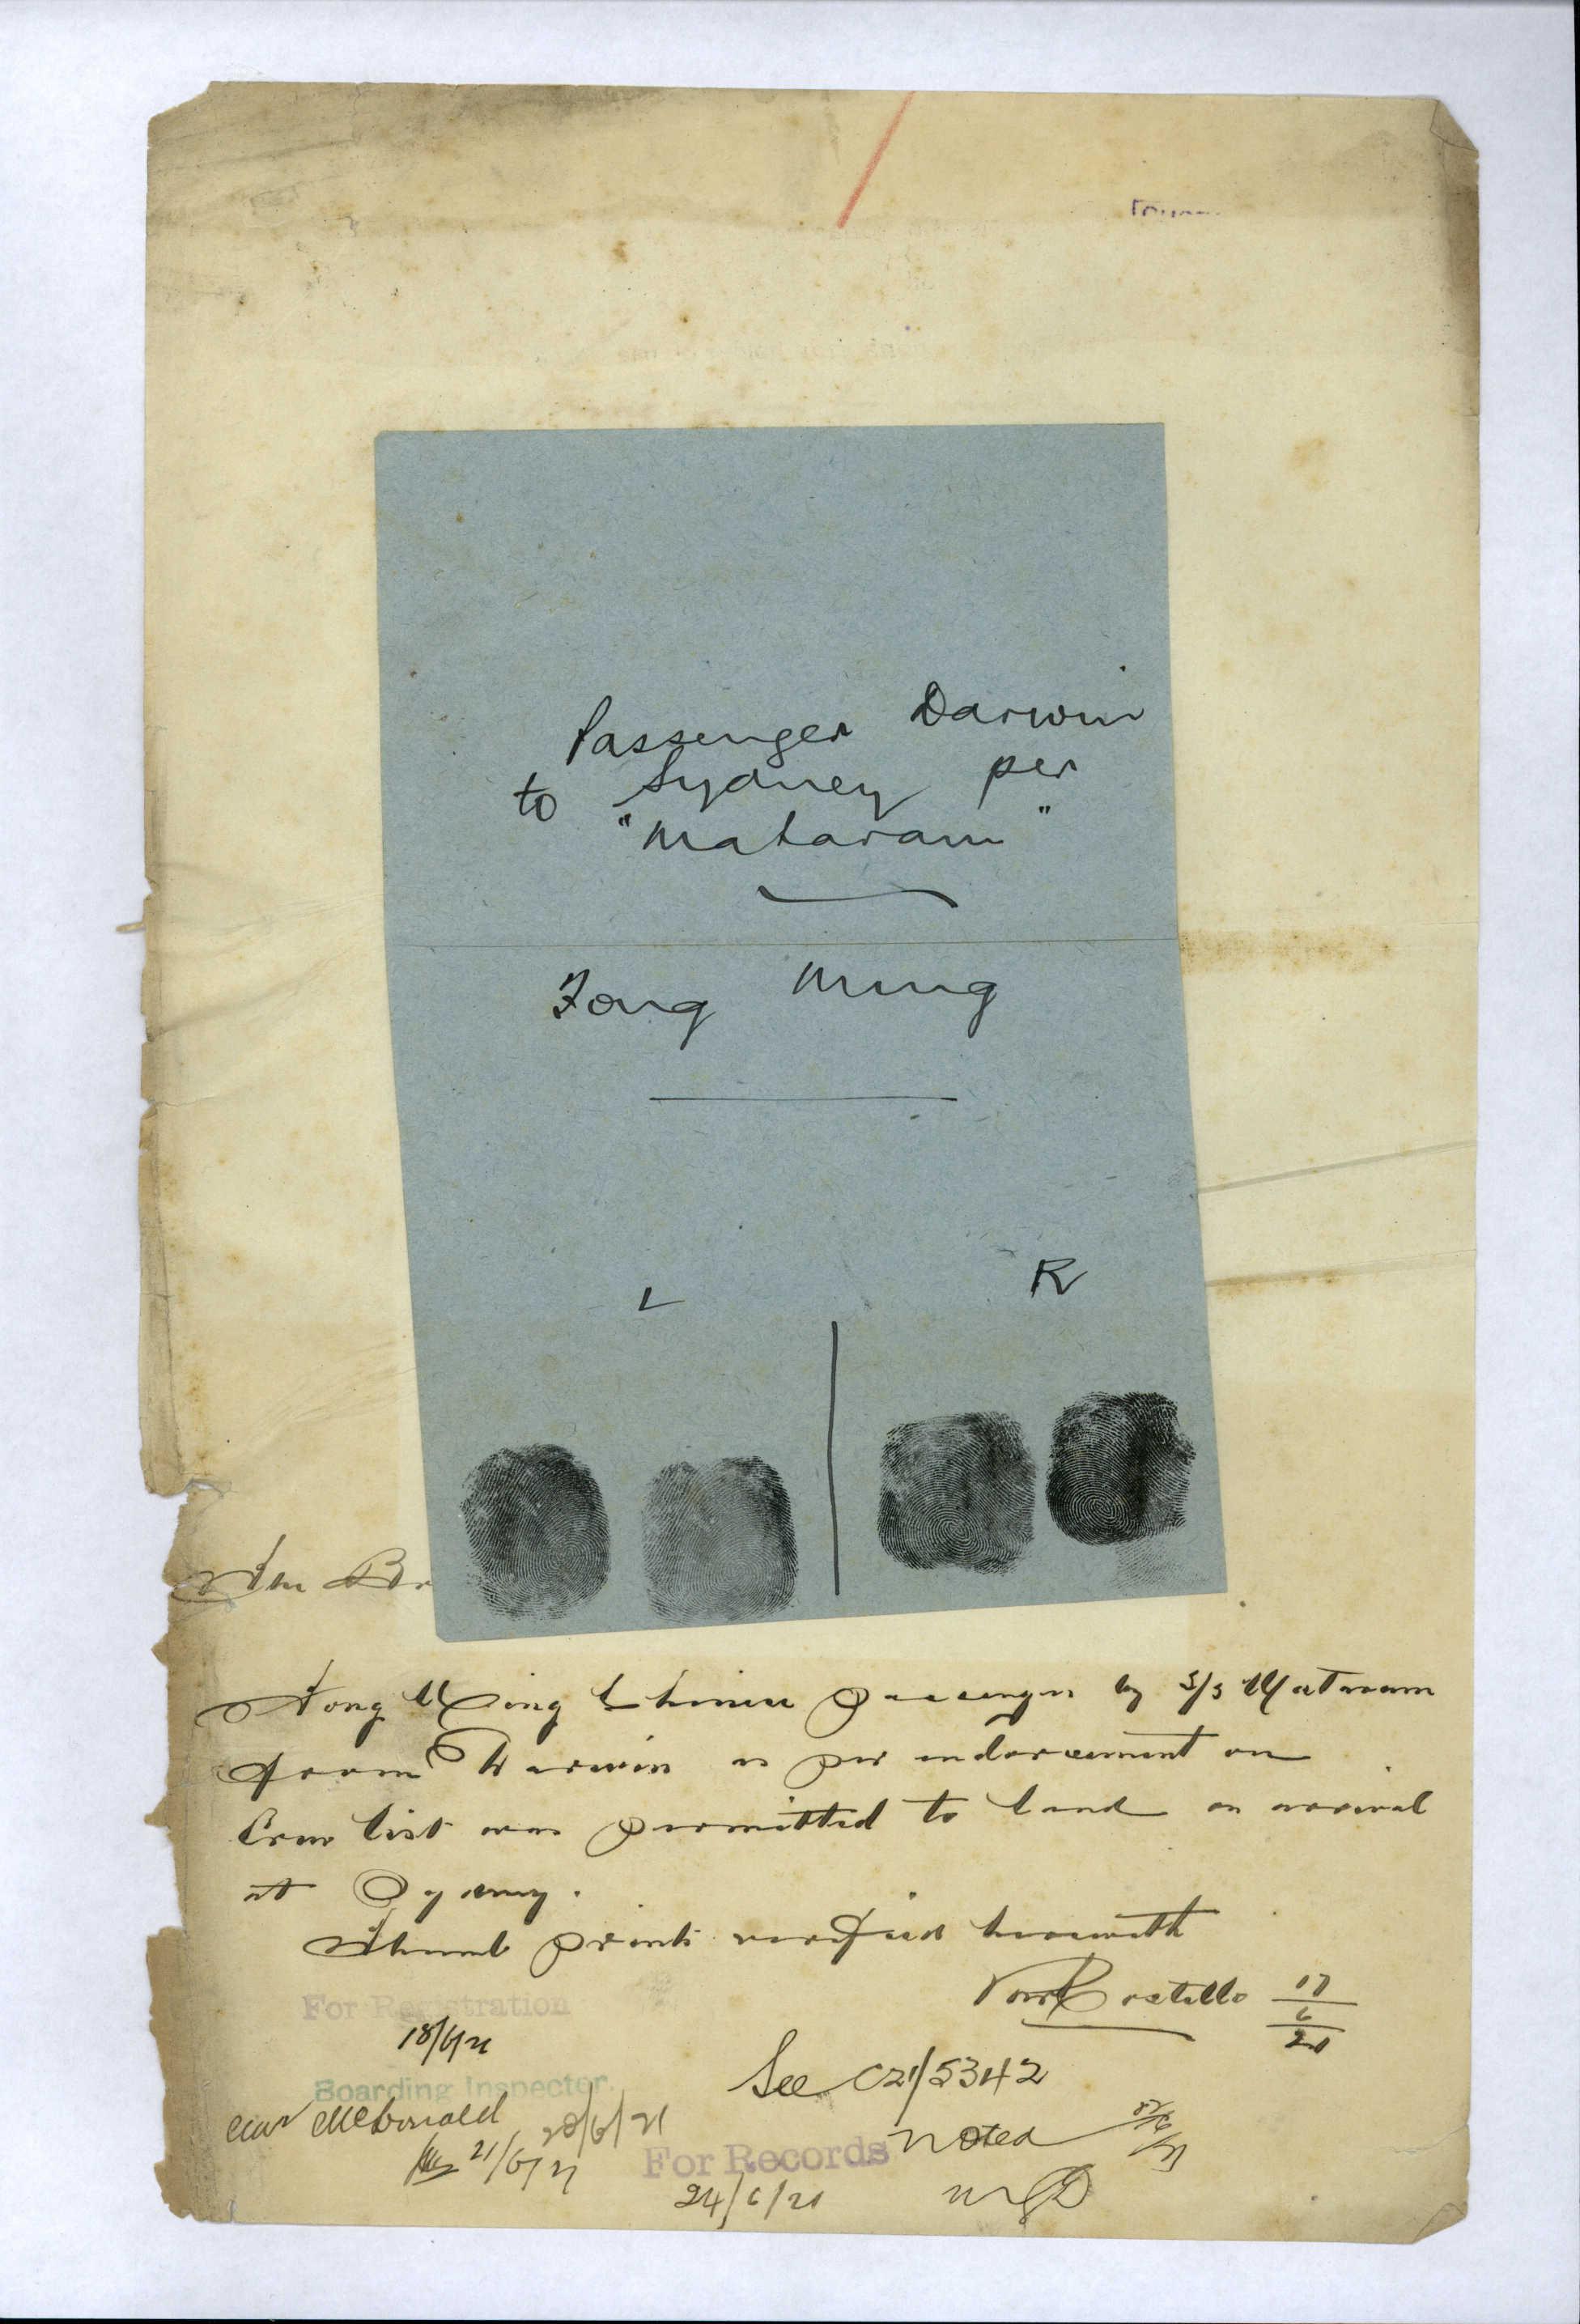 Passenger Darwin
to Sydney per
"Mataram"
Fong Ming
L
R
Fong Ming Chinese passenger by S/S Mataram
from Darwin as per endorsement on
Crew list was permitted to land on arrival
at Sydney.
Thumb prints verified herewith
Costello 17/6/21
For Registration
18/6/21
Boarding Inspector.
McDonald 20/6/21
21/6/21
See C21/5342
Noted
For Records
24/6/21